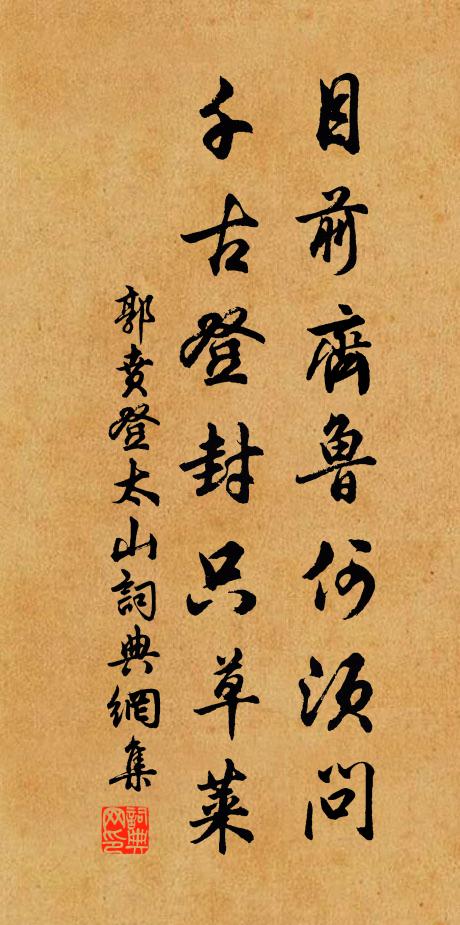 目前齊魯何須問
千古登封只草萊
郭賁登太山詞典網集
詞典网印